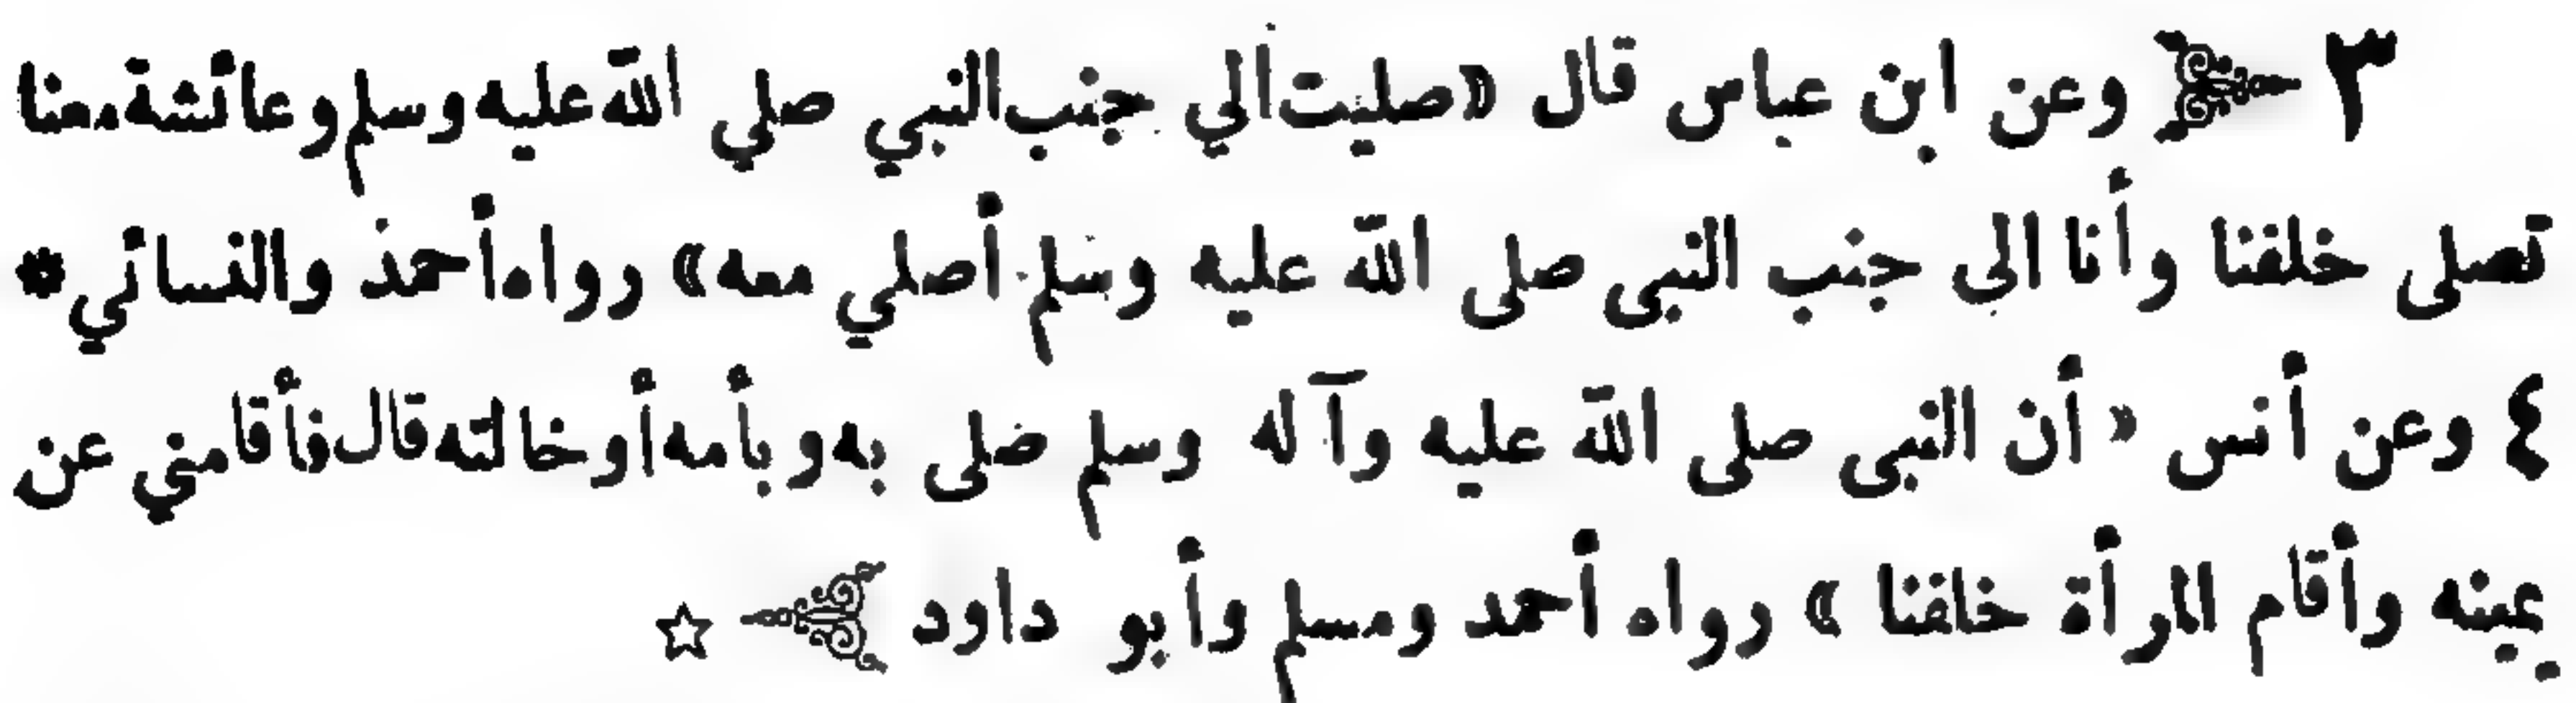 ٣ وعن ابن عباس قال «صليت الي جنب النبي صلي الله عليه وسلم وعائشة معنا
تصلى خلفنا وأنا الى جنب النبى صلى الله عليه وسلم أصلي معه» رواه أحمد والنسائي *
٤ وعن أنس «أن النبى صلى الله عليه وآله وسلم صلى به وبأمه أو خالته قال فأقامني عن
يمينه وأقام المرأة خلفنا» رواه أحمد ومسلم وأبو داود ☆